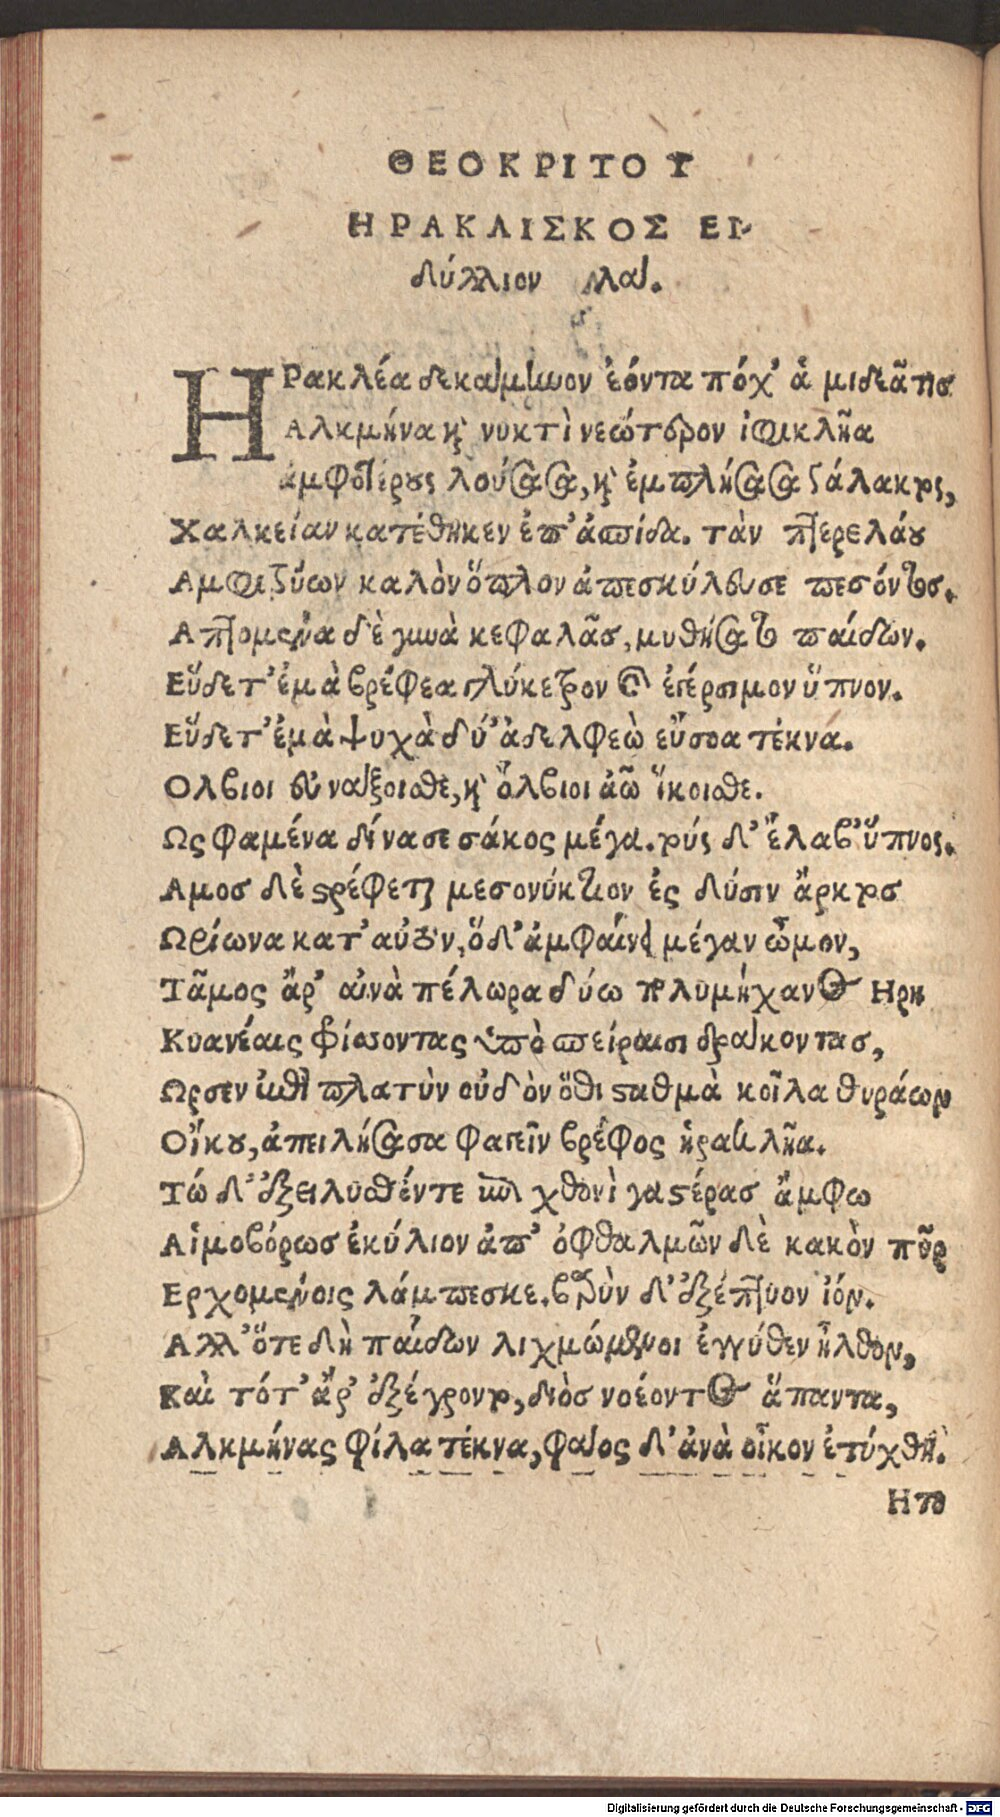 ΘΕΟΚΡΙΤΟΥ
ΗΡΑΚΛΙΣΚΟΣ ΕΙ-
δύλλιον κδʹ.
ΗΡακλέα δεκάμηνον ἐόντα πόχ' ἁ μιδεᾶτις
Αλκμήνα κὶ νυκτὶ νεώτερον ἰφικλῆα
ἀμφοτέρους λούσασα, κὶ ἐμπλήσασα γάλακτος,
Χαλκείαν κατέθηκεν ἐπ' ἀσπίδα. τὰν πτερελάου
Αμφιτρύων καλὸν ὅπλον ἀπεσκύλευσε πεσόντος.
Απτομένα δὲ γυνὰ κεφαλᾶς, μυθήσατο παίδων.
Εὕδετ' ἐμὰ βρέφεα γλύκερον καὶ ἐγέρσιμον ὕπνον.
Εὕδετ' ἐμὰ ψυχὰ δύ' ἀδελφεὼ εὔσοα τέκνα.
Ολβιοι εὐνάζοισθε, κὶ ὄλβιοι ἀῶ ἵκοισθε.
Ως φαμένα δίνασε σάκος μέγα. τοὺς δ' ἔλαβ' ὕπνος.
Αμος δὲ στρέφεται μεσονύκτιον ἐς δύσιν ἄρκτος
Ωρίωνα κατ' αὐτὸν, ὅδ' ἀμφαίνει μέγαν ὦμον,
Τᾶμος ἄρ' αἰνὰ πέλωρα δύω πολυμήχανος Ηρη
Κυανέαις φρίσσοντας ὑπὸ σπείραισι δράκοντας,
Ωρσεν ἐπὶ πλατὺν οὐδὸν ὅθι σταθμὰ κοῖλα θυράων
Οἴκου, ἀπειλήσασα φαγεῖν βρέφος ἡρακλῆα.
Τώ δ' ἐξειλυσθέντε ἐπὶ χθονὶ γαστέρας ἄμφω
Αἱμοβόρως ἐκύλιον ἀπ' ὀφθαλμῶν δὲ κακὸν πῦρ
Ερχομένοις λάμπεσκε. βαρὺν δ' ἐξέπτυον ἰόν.
Αλλ' ὅτε δὴ παίδων λιχμώμενοι ἐγγύθεν ἦλθον,
Καὶ τότ' ἄρ' ἐξέγροντο, διὸς νοέοντος ἅπαντα,
Αλκμήνας φίλα τέκνα, φάος δ' ἀνὰ οἶκον ἐτύχθη.
Ητο
Digitalisierung gefördert durch die Deutsche Forschungsgemeinschaft - DFG